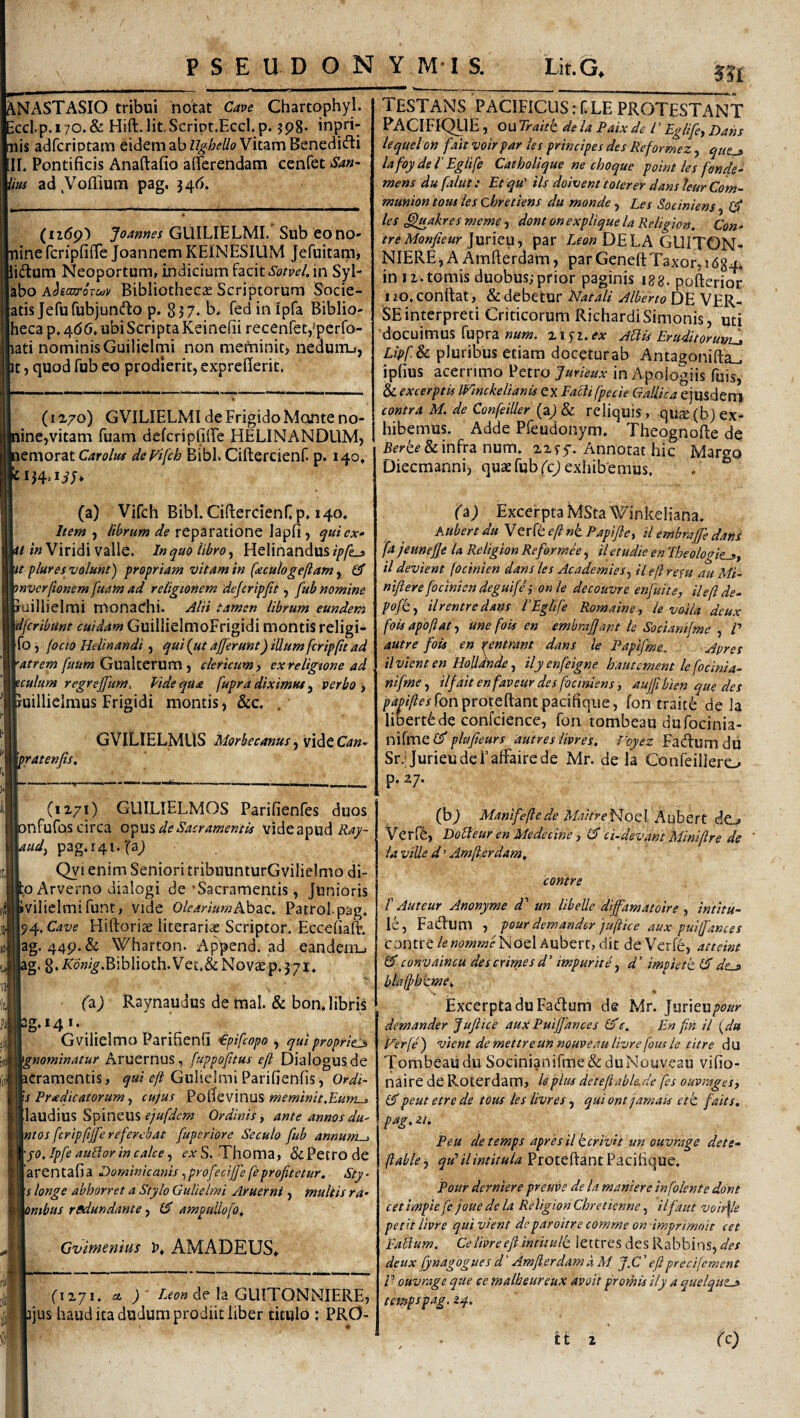 PSEUDONYMIS. Lit.G.
ANASTASIO tribui notat Cave Chartophyl.
Eccl.p.170.& Hist. lit. Script.Eccl. p. 398. inpri-
mis adscriptam eidem ab Ughello Vitam Benedicti
III. Pontificis Anastasio asserendam censet San-
dius ad Vossium pag. 346.
(1269) Joannes GUILIELMI. Sub eo no-
mine scripsisse Joannem KEINESIUM Jesuitam,
dictum Neoportum, indicium facit Sotvel. in Syl-
labo Bibliothecæ Scriptorum Socie-
tatis Jesu subjuncto p. 837. b. sed in ipsa Biblio-
theca p. 466. ubi Scripta Keinesii recenset, perso-
nati nominis Guilielmi non meminit, nedum,
ut, quod sub eo prodierit, expresserit.
(1270) GVILIELMI de Frigido Monte no-
mine, vitam suam descripsisse HELINANDUM,
memorat Carolus de Visch Bibl. Cisterciens. p. 140.
& 134. 135.
(a) Visch Bibl. Cisterciens. p. 140.
Item , librum de reparatione lapsi , qui ex-
tat in Viridi valle. In quo libro, Helinandus ipse
(ut plures volunt) propriam vitam in sæculo gestam, &
conversionem suam ad religionem descripsit , sub nomine
Guillielmi monachi. Alii tamen librum eundem
adscribunt cuidam Guillielmo Frigidi montis religi-
oso , socio Helinandi , qui (ut asserunt) illum scripsit ad
fratrem suum Gualterum , clericum, ex religione ad
seculum regressum. Vide quæ supra diximus, verbo ,
Guillielmus Frigidi montis, &c.
GVILIELMUS Morbecanus, vide Can-
pratensis.
(1271) GUILIELMOS Parisienses duos
confusos circa opus de Sacramentis vide apud Ray-
naud, pag. 141. (a)
Qvi enim Seniori tribuuntur Gvilielmo di-
cto Arverno dialogi de Sacramentis, Junioris
Gvilielmi sunt, vide Olearium Abac. Patrol. pag.
194. Cave Historiæ literariæ Scriptor. Ecclesiast.
pag. 449. & Wharton. Append. ad eandem
pag. 8. König. Biblioth. Vet. & Nova p. 371.
(a) Raynaudus de mal. & bon. libris
pag. 141.
Gvilielmo Parisiensi Episcopo , qui proprie
cognominatur Aruernus, suppositus est Dialogus de
Sacramentis, qui est Gulielmi Parisiensis, Ordi-
nis Prædicatorum, cujus Possevinus meminit. Eum
Claudius Spineus ejusdem Ordinis, ante annos du-
centos scripsisse referebat superiore Seculo sub annum
50. Ipse auctor in calce, ex S. Thoma, & Petro de
Tarentasia Dominicanis, profecisse se profitetur. Sty-
lus longe abhorret a Stylo Gulielmi Aruerni, multis ra-
tionibus redundante, & ampulloso.
Gvimenius v. AMADEUS.
(1271. α ) Leon de la GUITONNIERE,
cujus haud ita dudum prodiit liber titulo : PRO-
TESTANS PACIFICUS: s. LE PROTESTANT
PACIFIQUE, ou Traité de la Paix de l' Eglise, Dans
lequel on fait voir par les principes des Reformez, que
la foy de l' Eglise Catholique ne choque point les fonde-
mens du salut: Et qu' ils doivent tolerer dans leur Com-
munion tous les Chretiens du monde , Les Sociniens, &
les Quakres meme, dont on explique la Religion. Con-
tre Monsieur Jurieu, par Leon DE LA GUITON-
NIERE, A Amsterdam, par Genest Taxor, 1684.
in 12. tomis duobus; prior paginis 188. posterior
110. constat, & debetur Natali Alberto DE VER-
SE interpreti Criticorum Richardi Simonis, uti
docuimus supra num. 2152. ex Actis Eruditorum
Lips. & pluribus etiam docetur ab Antagonista
ipsius acerrimo Petro Jurieux in Apologiis suis,
& excerptis Winckelianis ex Facti specie Gallica ejusdem
contra M. de Conseiller (a) & reliquis, quæ (b) ex-
hibemus. Adde Pseudonym. Theognoste de
Berée & infra num. 2255. Annotat hic Margo
Diecmanni, quæ sub (c) exhibemus.
(a) Excerpta MSta Winkeliana.
Aubert du Versé est né Papiste, il embrasse dans
sa jeunesse la Religion Reformée, il etudie en Theologie,
il devient socinien dans les Academies, il est resu au Mi-
nistere socinien deguisé; on le decouvre ensuite, il est de-
posé, il rentre dans l'Eglise Romaine, le voila deux
fois apostat, une fois en embrassant le Socianisme , l'
autre fois en rentrant dans le Papisme. Apres
il vient en Hollande, il y enseigne hautement le socinia-
nisme, il fait en faveur des sociniens, aussi bien que des
papistes son protestant pacifique, son traité de la
liberté de conscience, son tombeau du socinia-
nisme & plusieurs autres livres. Voyez Factum du
Sr. Jurieu de l'affaire de Mr. de la Conseillere
p. 27.
(b) Manifeste de Maitre Noel Aubert de
Versé, Docteur en Medecine, & ci-devant Ministre de
la ville d' Amsterdam,
contre
l' Auteur Anonyme d' un libelle diffamatoire , intitu-
lé, Factum , pour demander justice aux puissances
contre le nommé Noel Aubert, dit de Versé, atteint
& convaincu des crimes d' impurité, d' impieté & de
blasphéme.
Excerpta du Factum de Mr. Jurieu pour
demander Justice aux Puissances &c. En fin il (du
Versé) vient de mettre un nouveau livre sous le titre du
Tombeau du Socinianisme & du Nouveau visio-
naire de Roterdam, le plus detestable de ses ouvrages,
& peut etre de tous les livres, qui ont jamais eté faits.
pag. 21.
Peu de temps apres il écrivit un ouvrage dete-
stable, qu' il intitula Protestant Pacifique.
Pour derniere preuve de la maniere insolente dont
cet impie se joue de la Religion Chretienne, il faut voir le
petit livre qui vient de paroitre comme on imprimoit cet
Factum. Ce livre est intitulé lettres des Rabbins, des
deux synagogues d' Amsterdam à M J.C' est precisement
l' ouvrage que ce malheureux avoit promis il y a quelque
temps pag. 24.
tt 2 (c)